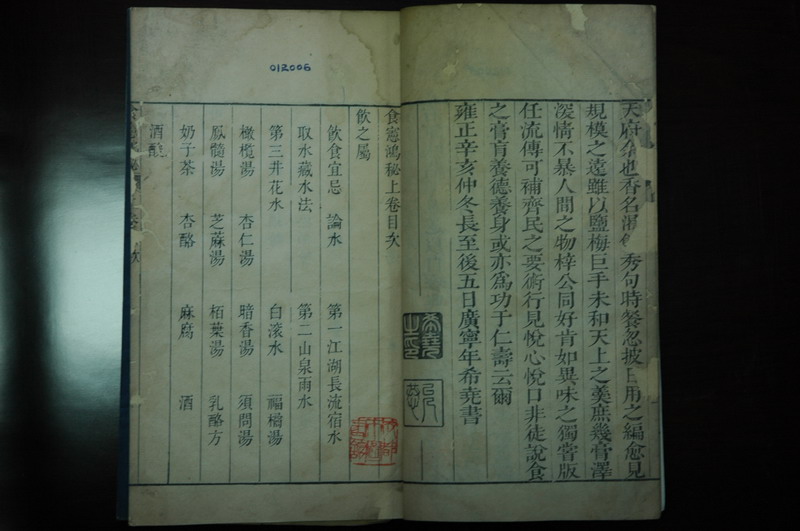 天府 也香名 秀句時餐忽披日用之編愈見
規模之遠雖以鹽梅巨手未和天上之羹庶幾膏澤
深情不暴人間之物梓公同好肯如異味之獨嘗版
任流傳可補齊民之要術行見悅心悅口非徒說食
之膏肓養德養身或亦為功于仁壽云爾
雍正辛亥仲冬長至後五日廣寧年希堯書
希堯之印
012006
食憲鴻秘上卷目次
飲之屬
飲食宜忌 論水 第一江湖長流宿水
取水藏水法 第二山泉雨水
第三井花水 白滚水 福橘湯
橄欖湯 杏仁湯 暗香湯 須問湯
鳳髓湯 芝蔴湯 栢葉湯 乳酪方
奶子茶 杏酪 麻腐 酒
酒釀